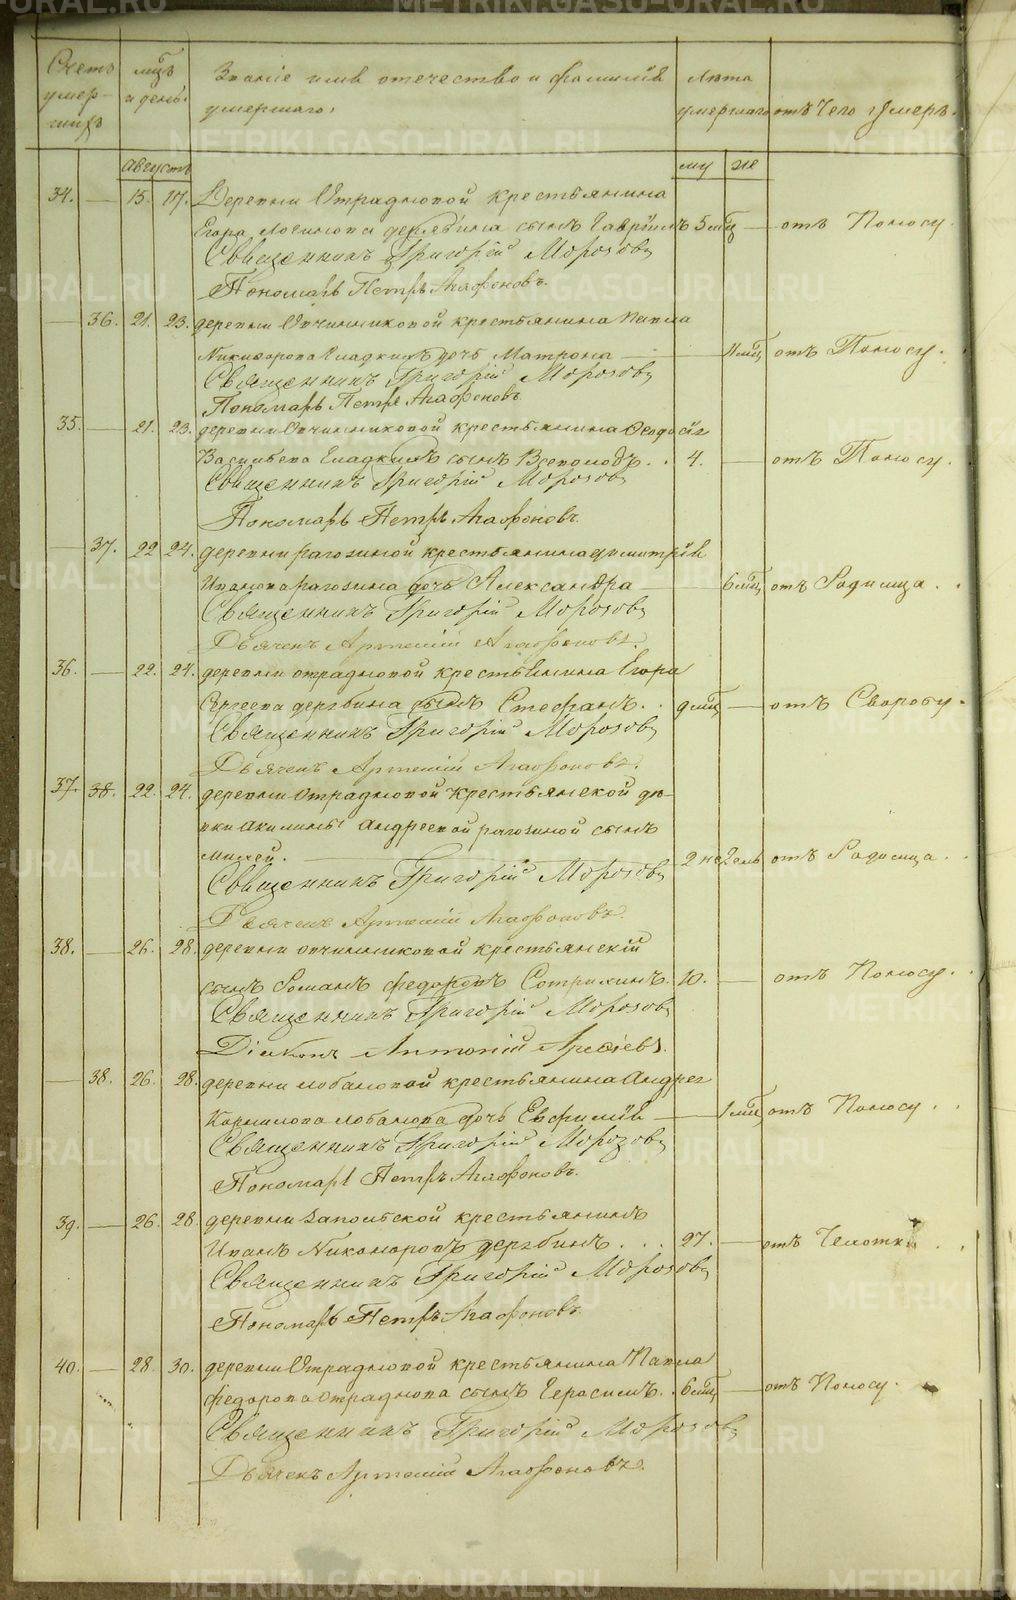 Счетъ умер- шихъ
мцъ и день.
Званіе имя отечество и фамилія умершаго.
Лета умершаго
отъ Чего Умеръ.
Августъ
му же
34. — 15. 17. Деревни Отрадновой крестьянина
Егора Логинова дерябина сынъ Гавріилъ 5 мцъ — отъ Поносу.
Священникъ Григорій Морозовъ
Пономарь Петръ Агафоновъ.
— 36. 21. 23. деревни Овчинниковой крестьянина Павла
Никифорова Гладкихъ дочь Матрона — мцъ отъ Поносу.
Священникъ Григорій Морозовъ
Пономарь Петръ Агафоновъ
35. — 21. 23. деревни Овчинниковой крестьянина Феодосія
Васильева Гладкихъ сынъ Всеволодъ. . 4. — отъ Поносу.
Священникъ Григорій Морозовъ
Пономарь Петръ Агафоновъ.
— 37. 22 24. деревни рагозиной крестьянина димитрія
Иванова рагозина дочь Александра — 6 мцъ отъ Родимца. .
Священникъ Григорій Морозовъ
Дьячекъ Артемій Агафоновъ.
36. — 22. 24. деревни отрадновой крестьянина Егора
Сергеева дерябина сынъ Стефанъ. . 9 мцъ — отъ Сваробу.
Священникъ Григорій Морозовъ
Дьячекъ Артемій Агафоновъ.
37. 38. 22. 24. деревни Отрадновой Крестьянской де-
вки Акилины Андреевой рагозиной сынъ
— 2 недель отъ Родимца. .
Священникъ Григорій Морозовъ
Дьячекъ Артемій Агафоновъ.
38. — 26. 28. деревни овчинниковой крестьянскій
сынъ Романъ федоровъ Сотрихинъ. 10. — отъ Поносу. .
Священникъ Григорій Морозовъ
Діаконъ Антоній Арефіевъ.
— 38. 26. 28. деревни лобановой крестьянина Андрея
Корнилова лобанова дочь Евфимія — 1 мцъ отъ Поносу . .
Священникъ Григорій Морозовъ
Пономарь Петръ Агафоновъ.
39. — 26. 28. деревни Запольской крестьянинъ
Иванъ Никаноровъ дерябинъ. . . 27. — отъ Чехотки . .
Священникъ Григорій Морозовъ
Пономарь Петръ Агафоновъ.
40. — 28. 30. деревни Отрадновой крестьянина Павла
федорова Отраднова сынъ Герасимъ. . 6 мцъ — отъ Поносу.
Священникъ Григорій Морозовъ
Дьячекъ Артемій Агафоновъ.
METRIKI.GASO-URAL.RU